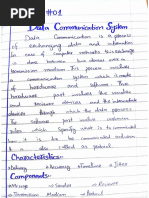 #01
Data Communication System
Data Communication is a process
of exchanging data and information
computer networks this exchange
is done between two devices over a
transmission medium. This process involves
communication system which is made
of hardware and software. Hardware
part involves the sender
and receiver devices and the intermediate
devices through which the data
passes. Software part involves certain
rules which specify what is to communicated
it is communicated and when. It
is also called a Protocol.
Characteristics:-
Delivery Accuracy Timeliness Jitter
Components:-
Message Sender Receiver
Transmission Medium Protocol